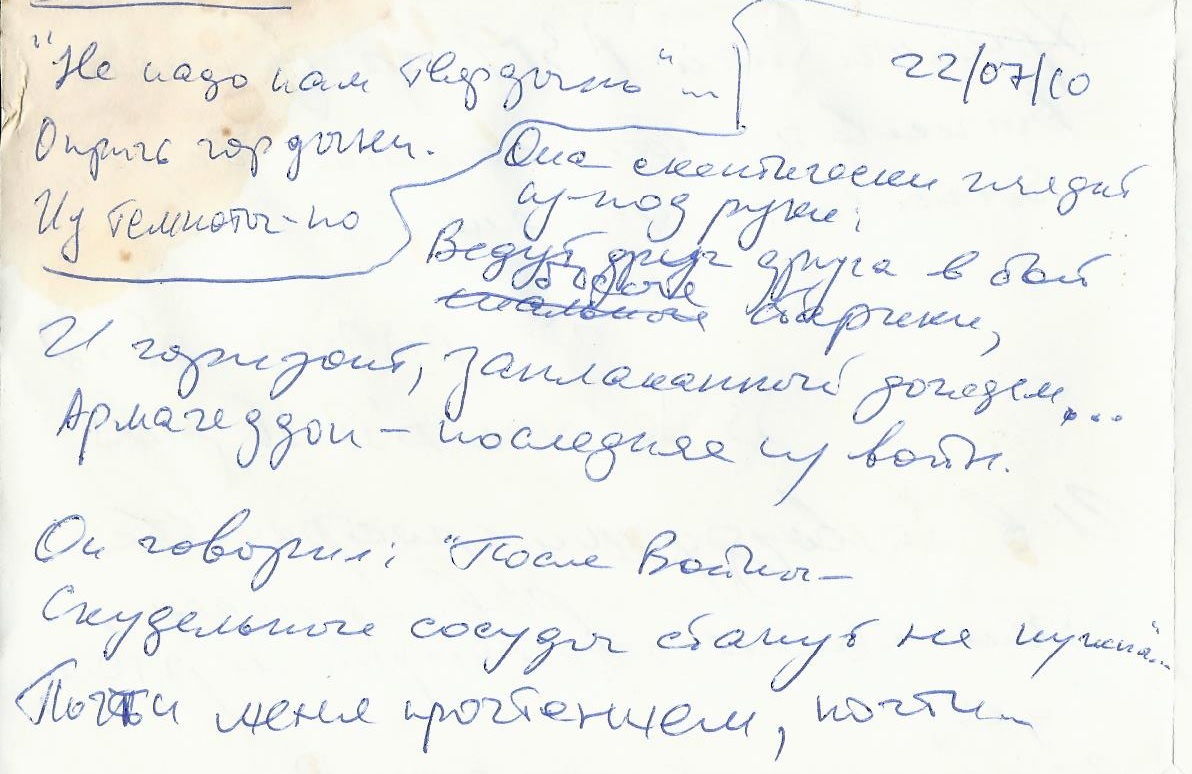 "Не надо нам твердынь"...
Опричь гордыни.
Из темноты-по
22/07/10
Она скептически глядит
из-под руки:
Ведут друг друга в бой
больные старики,
И горизонт, заплаканный дождем,...
Армагеддон – последняя из войн.
Он говорил: "После Войны –
Скудельные сосуды станут не нужны"...
Почти меня прочтеньем, почти...